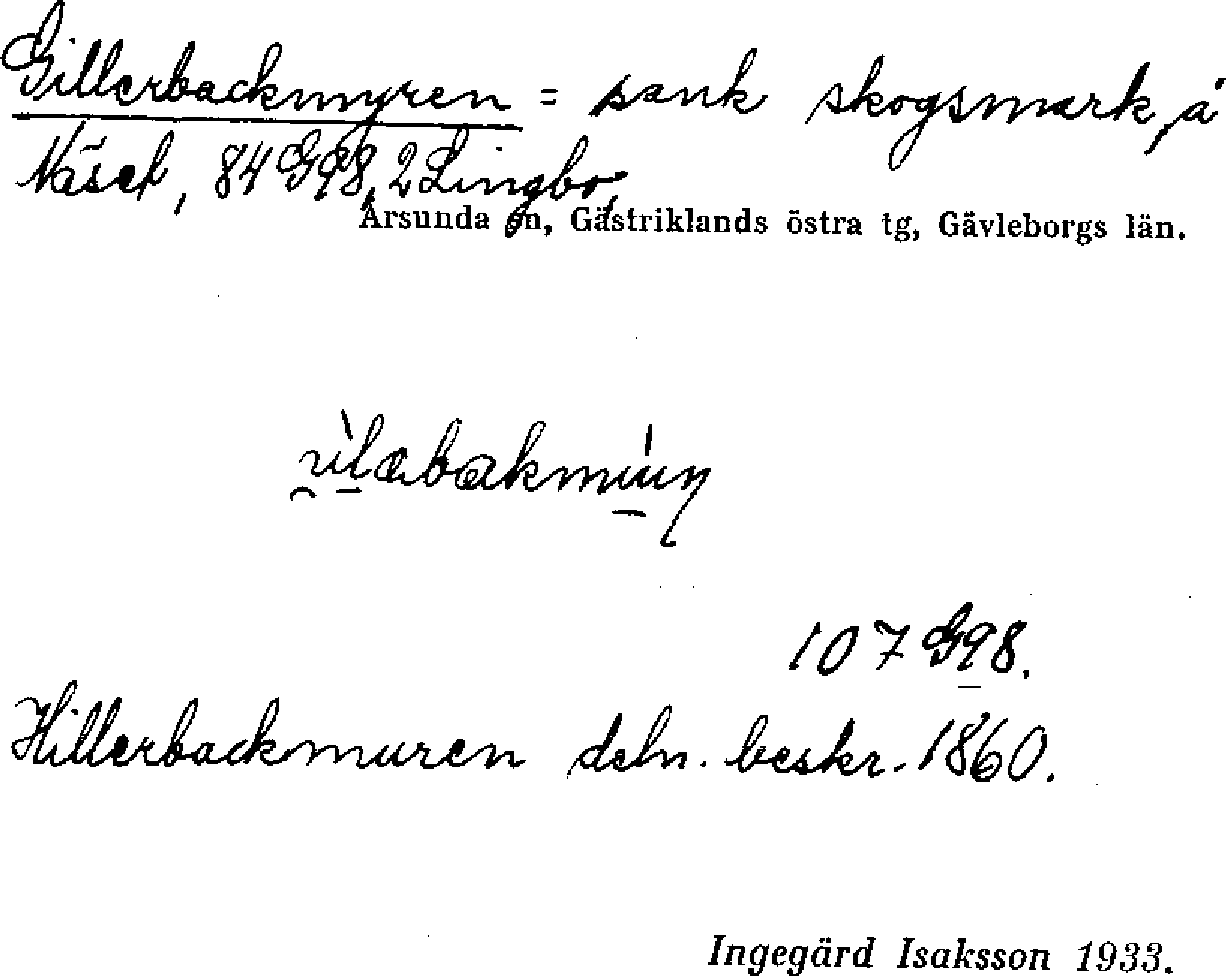 Gillerbackmyren = sank skogsmark, å
Näset, 84 G98, 2 Lingbo,
Årsunda sn, Gästriklands östra tg, Gävleborgs län.
107 G98.
Hillerbackmuren deln. beskr. 1860.
Ingegärd Isaksson 1933.